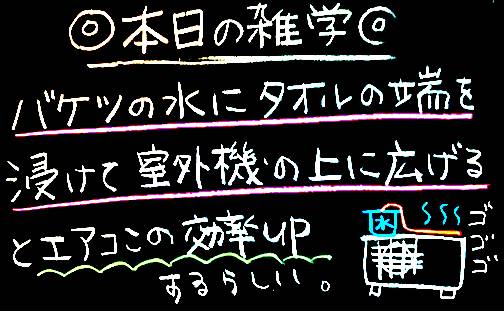 ◎本日の雑学◎
バケツの水にタオルの端を
浸けて室外機の上に広げる
とエアコンの効率up
するらしい。
水
ゴ
ゴ
ゴ